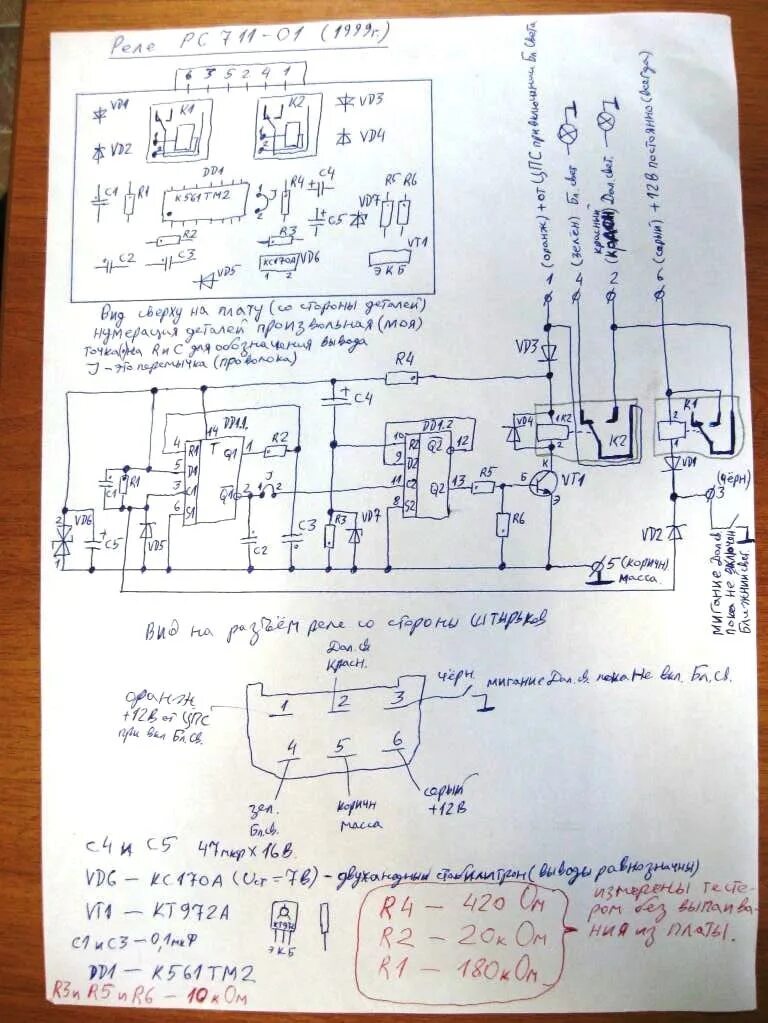 Реле РС 711-01 (1999г.)
6 3 5 2 4 1
VD1
K1
K2
VD3
VD2
VD4
DD1
К561ТМ2
C1
R1
R4
C4
R5 R6
VD7
C5
R2
R3
VT1
C2
C3
VD5
КС170А
VD6
1 2
Э К Б
Вид сверху на плату (со стороны деталей)
нумерация деталей произвольная (моя)
точка(•) на R и C для обозначения вывода
J - это перемычка (проволока)
1 (оранж) + от ЦПС при включении Бл. Света
4 (зелён) Бл. свет
2 красный Дал. свет.
6 (серый) +12В постоянно (всегда)
VD3
R4
C4
VD4
K2
K2
K1
VD1
DD1.1
DD1.2
14
T
4 R1
5 D1
3 C1
6 S1
Q1 1
Q1 2
R2
J
10 R2
9 D2
11 C2
8 S2
Q2 12
Q2 13
R5
R6
Б
К
Э
VT1
C1
R1
VD6
C5
VD5
C2
C3
R3
VD7
VD2
(чёрн)
3
5 (коричн)
масса.
мигание Дал.св.
пока не включен
Ближний свет.
Вид на разъём реле со стороны штырьков
Дал. св.
Красн.
оранж.
+12В от ЦПС
при вкл Бл.св.
чёрн.
мигание Дал.св. пока Не вкл. Бл.св.
1 2 3
4 5 6
зел.
Бл.св.
коричн
масса
серый
+12В
C4 и C5 47мкр х 16В.
VD6 — КС170А (Uст = 7В) - двуханодный стабилитрон (выводы равнозначны)
VT1 — КТ972А
КТ972
Э К Б
C1 и C3 — 0,1мкФ
DD1 — К561ТМ2
R3 и R5 и R6 — 10кОм
R4 — 420 Ом
R2 — 20кОм
R1 — 180кОм
измерены тесте-
ром без выпаива-
ния из платы.